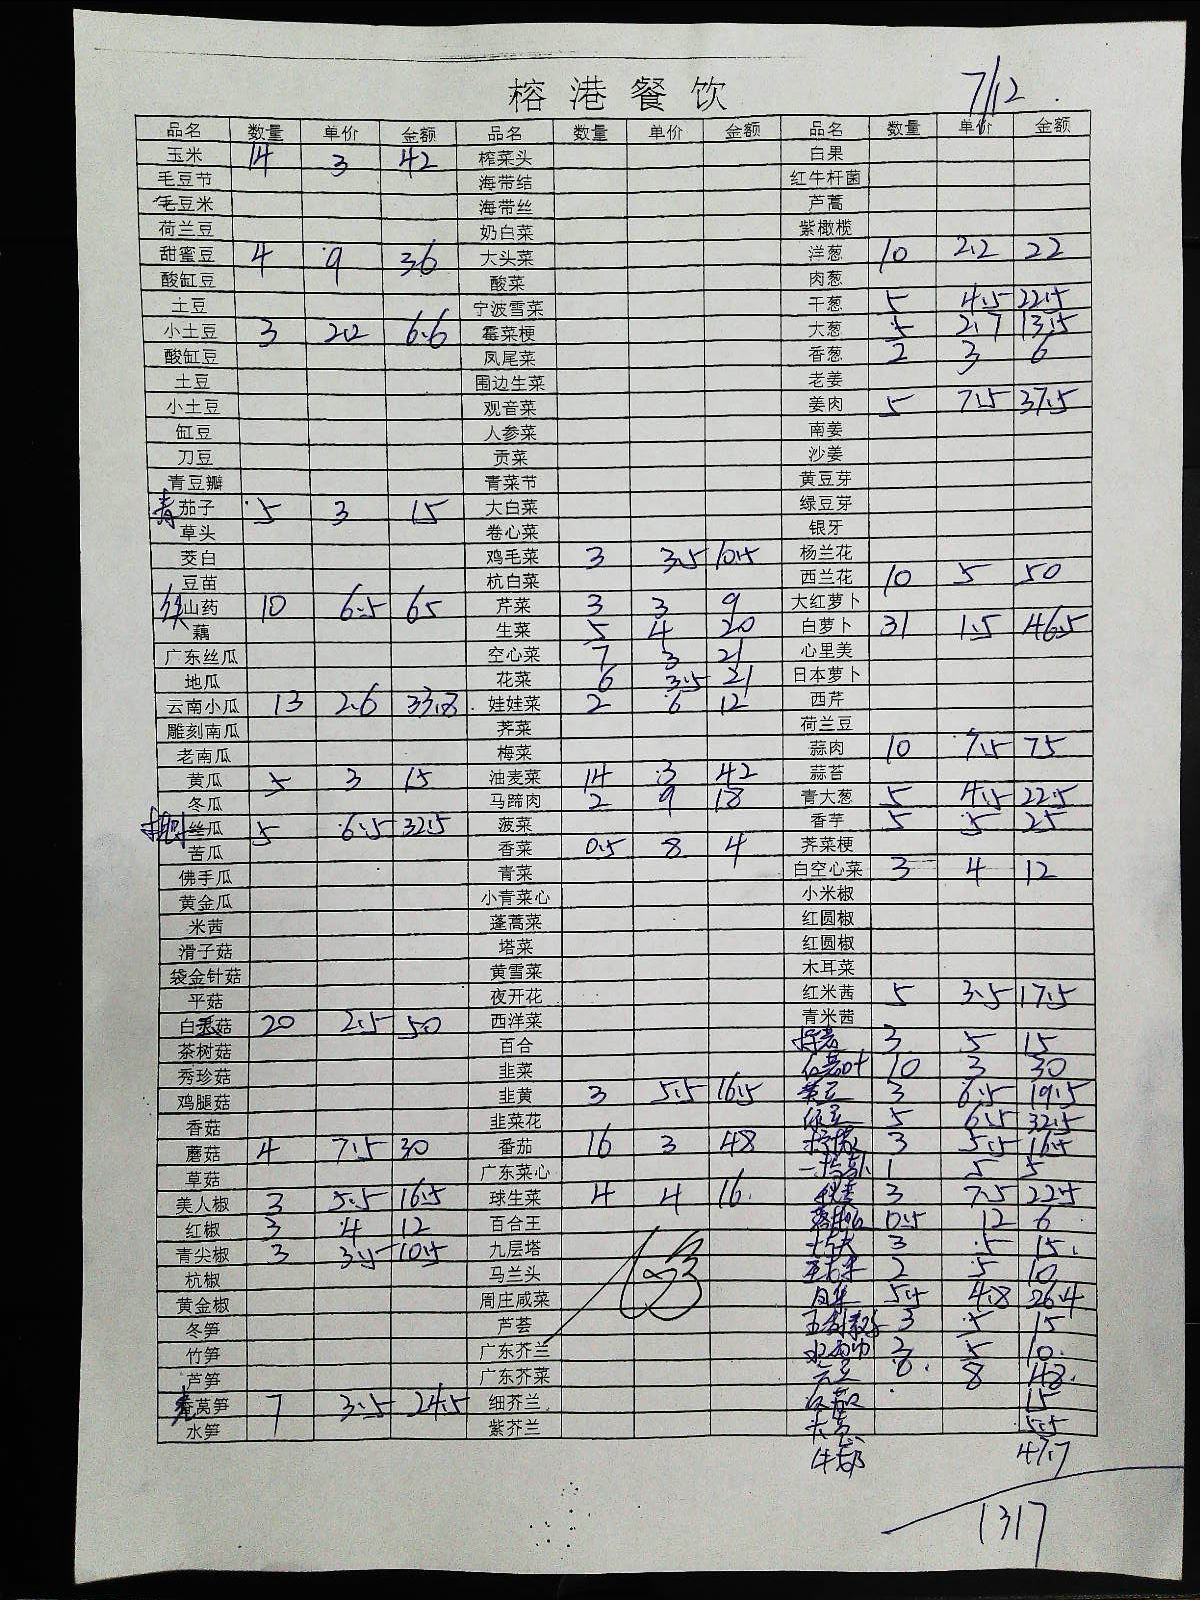 榕港餐饮 7/12
品名 数量 单价 金额 品名 数量 单价 金额 品名 数量 单价 金额
玉米 14 3 42 榨菜头 白果
毛豆节 海带结 红牛杆菌
毛豆米 海带丝 芦蒿
荷兰豆 奶白菜 紫橄榄
甜蜜豆 4 9 36 大头菜 洋葱 10 2.2 22
酸缸豆 酸菜 肉葱
土豆 宁波雪菜 干葱 5 4.5 22.5
小土豆 3 2.2 6.6 霉菜梗 大葱 5 2.7 13.5
酸缸豆 凤尾菜 香葱 2 3 6
土豆 围边生菜 老姜
小土豆 观音菜 姜肉 5 7.5 37.5
缸豆 人参菜 南姜
刀豆 贡菜 沙姜
青豆瓣 青菜节 黄豆芽
青茄子 5 3 15 大白菜 绿豆芽
草头 卷心菜 银牙
茭白 鸡毛菜 3 3.5 10.5 杨兰花
豆苗 杭白菜 西兰花 10 5 50
铁山药 10 6.5 65 芹菜 3 3 9 大红萝卜
藕 生菜 5 4 20 白萝卜 31 1.5 46.5
广东丝瓜 空心菜 7 3 21 心里美
地瓜 花菜 6 3.5 21 日本萝卜
云南小瓜 13 2.6 33.8 娃娃菜 2 6 12 西芹
雕刻南瓜 荠菜 荷兰豆
老南瓜 梅菜 蒜肉 10 7.5 75
黄瓜 5 3 15 油麦菜 14 3 42 蒜苔
冬瓜 马蹄肉 2 9 18 青大葱 5 4.5 22.5
丝瓜 5 6.5 32.5 菠菜 香芋 5 5 25
苦瓜 香菜 0.5 8 4 荠菜梗
佛手瓜 青菜 白空心菜 3 4 12
黄金瓜 小青菜心 小米椒
米茜 蓬蒿菜 红圆椒
滑子菇 塔菜 红圆椒
袋金针菇 黄雪菜 木耳菜
平菇 夜开花 红米茜 5 3.5 17.5
白菇 20 2.5 50 西洋菜 青米茜
茶树菇 百合 3 5 15
秀珍菇 韭菜 10 3 30
鸡腿菇 韭黄 3 5.5 16.5 黄豆 3 6.5 19.5
香菇 韭菜花 绿豆 5 6.5 32.5
蘑菇 4 7.5 30 番茄 16 3 48 3 5.5 16.5
草菇 广东菜心 1 5 5
美人椒 3 5.5 16.5 球生菜 4 4 16 3 7.5 22.5
红椒 3 4 12 百合王 0.5 12 6
青尖椒 3 3.5 10.5 九层塔 3 5 15
杭椒 马兰头 2 5 10
黄金椒 周庄咸菜 5.5 4.8 26.4
冬笋 芦荟 3 5 15
竹笋 广东芥兰 2 5 10
芦笋 广东芥菜 6 8 48
莴笋 7 3.5 24.5 细芥兰 15
水笋 紫芥兰 5.5
47.7
1317